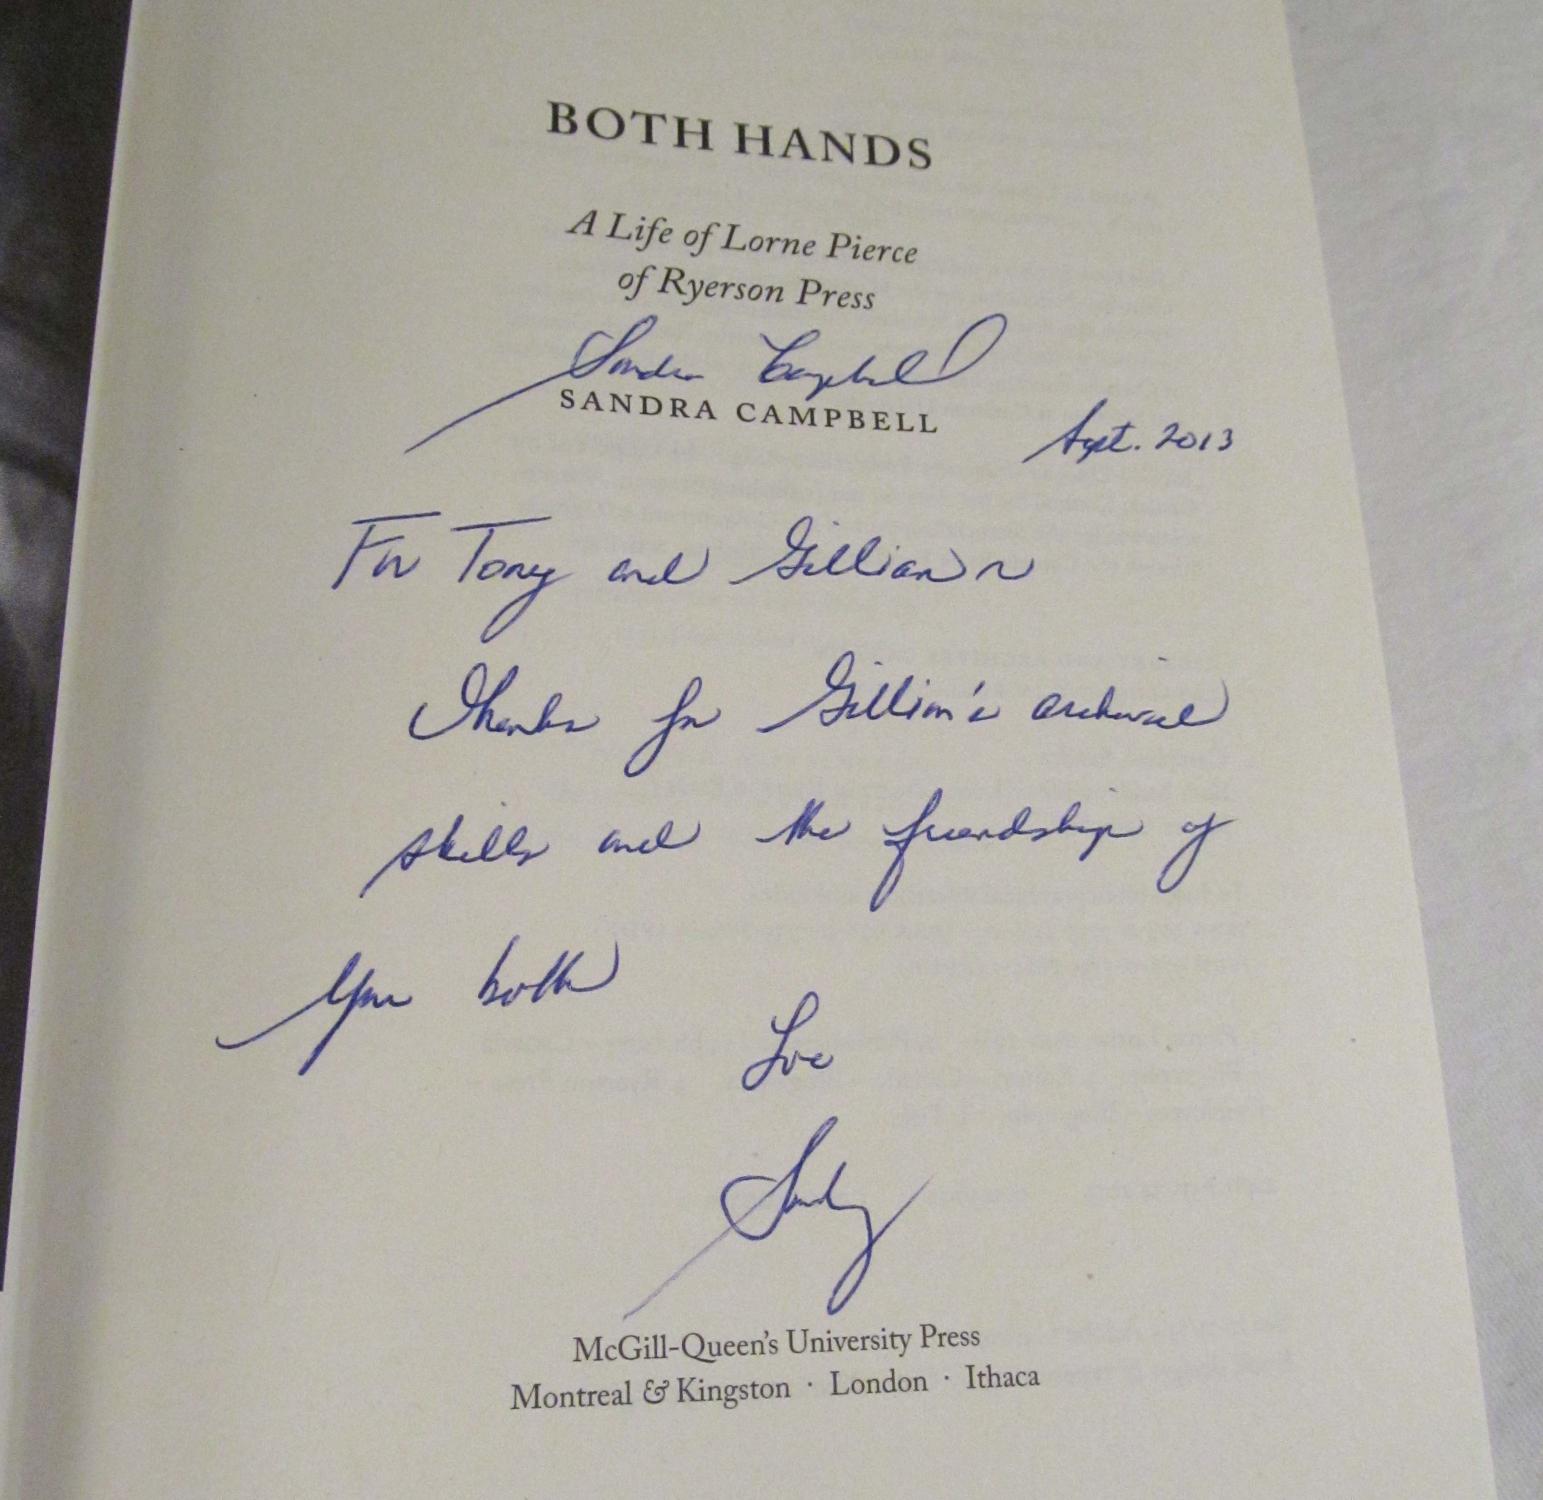 BOTH HANDS
A Life of Lorne Pierce
of Ryerson Press
Sandra Campbell
SANDRA CAMPBELL
Sept. 2013
For Tony and Gillian ~
Thanks for Gillian's archival
skills and the friendship of
you both
Love
Sandy
McGill-Queen's University Press
Montreal & Kingston · London · Ithaca